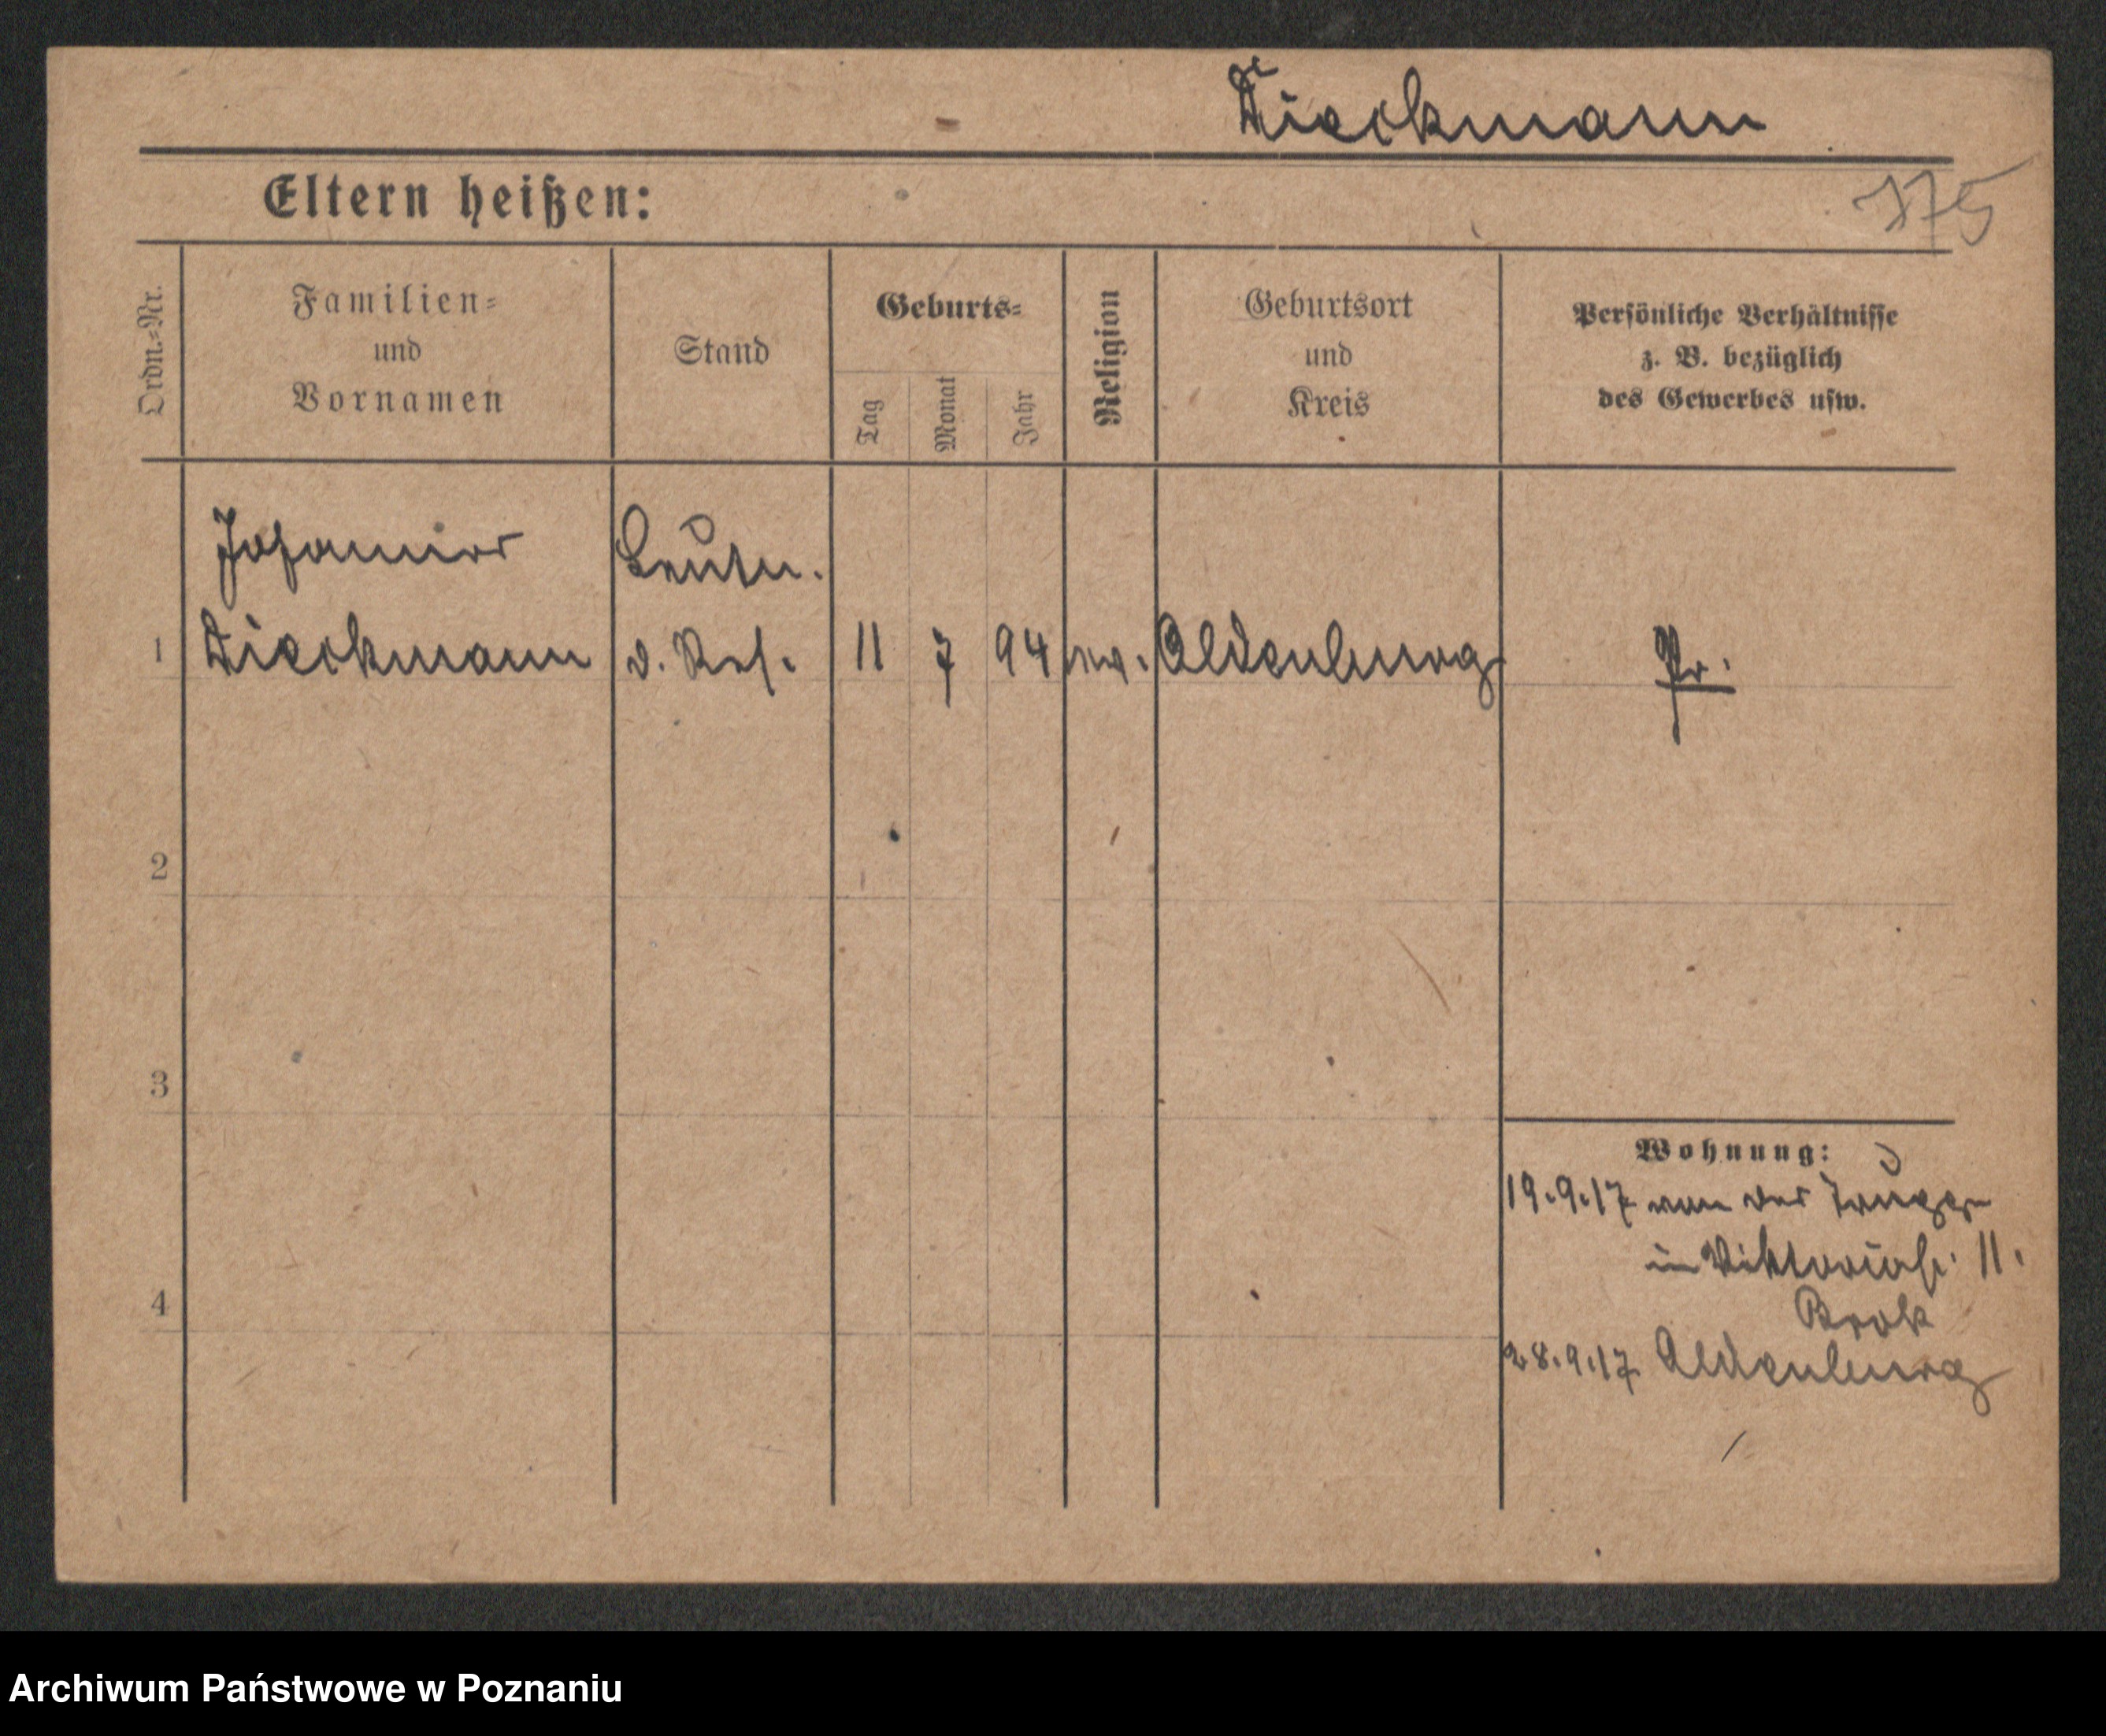 Dieckmann
Eltern heißen:
175
Ordn.-Nr.
Familien-
und
Vornamen
Stand
Geburts-
Tag
Monat
Jahr
Religion
Geburtsort
und
Kreis
Persönliche Verhältnisse
z. B. bezüglich
des Gewerbes usw.
Johannes Leutn.
1 Dieckmann d. Res. 11 7 94 ev. Oldenburg Pr.
2
3
4
Wohnung:
19.9.17 von der Truppe
in Viktoriastr. 11.
Brok
28.9.17 Oldenburg
Archiwum Państwowe w Poznaniu